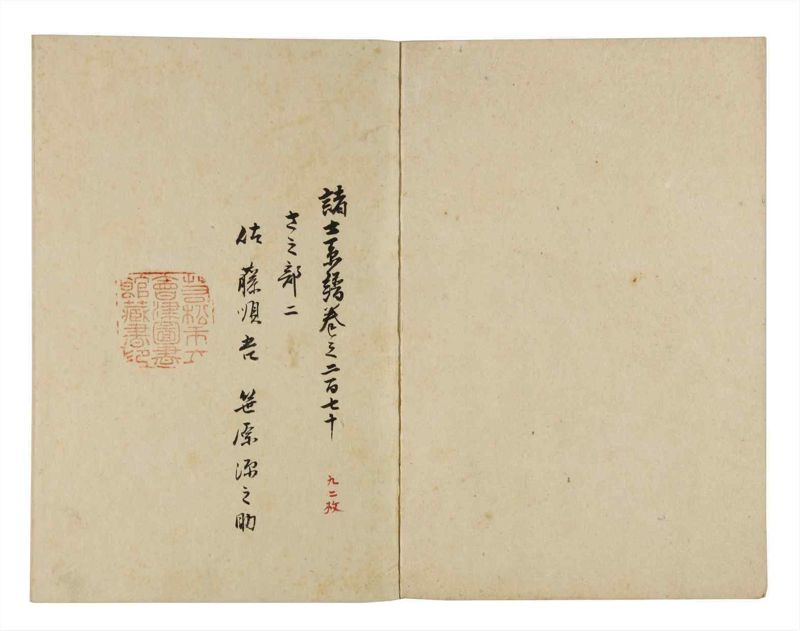 諸士系譜巻之二百七十
九二枚
さ之部二
佐藤順吉 笹原源之助
若松市立
會津圖書
館藏書印